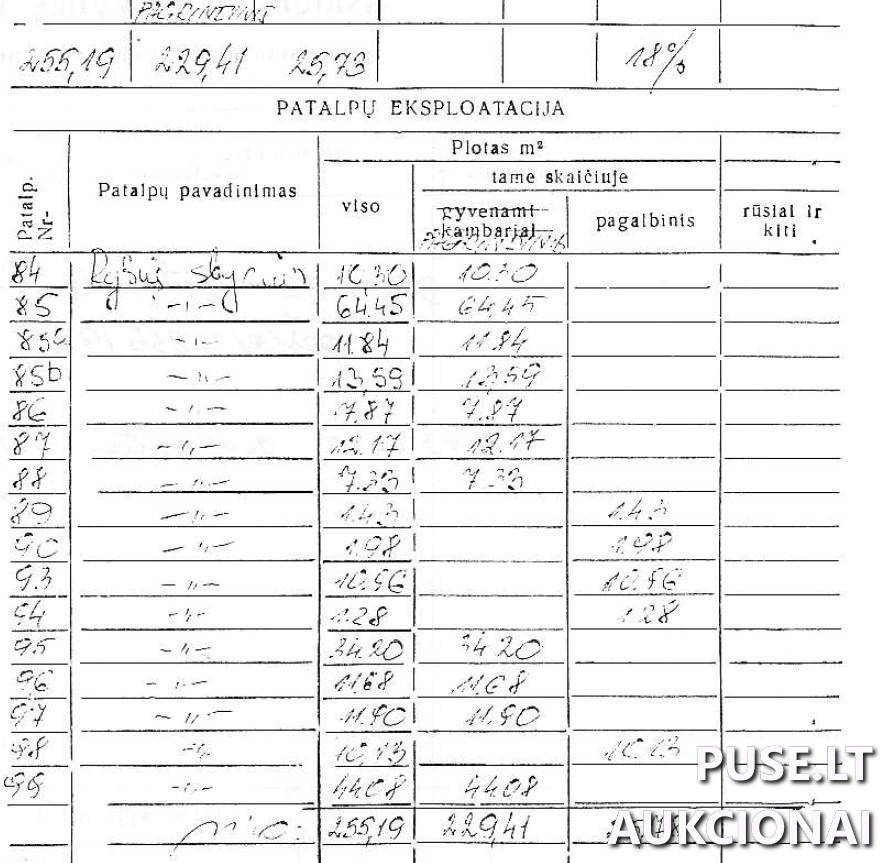 PAGRINDINIS
255,19 229,41 25,73 18%
PATALPŲ EKSPLOATACIJA
Patalp. Nr- Patalpų pavadinimas Plotas m²
viso tame skaičiuje
gyvenami kambariai pagalbinis rūsiai ir kiti
PAGRINDINIS
84 Ryšių skyrius 10,30 10.30
85 -"- 64.45 64,45
85a -"- 11.84 11.84
85b -"- 13,59 13,59
86 -"- 7.87 7.87
87 -"- 12.17 12.17
88 -"- 7.33 7.33
89 -"- 1.43 1.43
90 -"- 1.98 1.98
93 -"- 10.96 10.96
94 -"- 1.28 1.28
95 -"- 34.20 34.20
96 -"- 11.68 11.68
97 -"- 11.90 11.90
98 -"- 10,13 10.13
99 -"- 44.08 44.08
viso: 255,19 229,41 25,78
PUSE.LT
AUKCIONAI